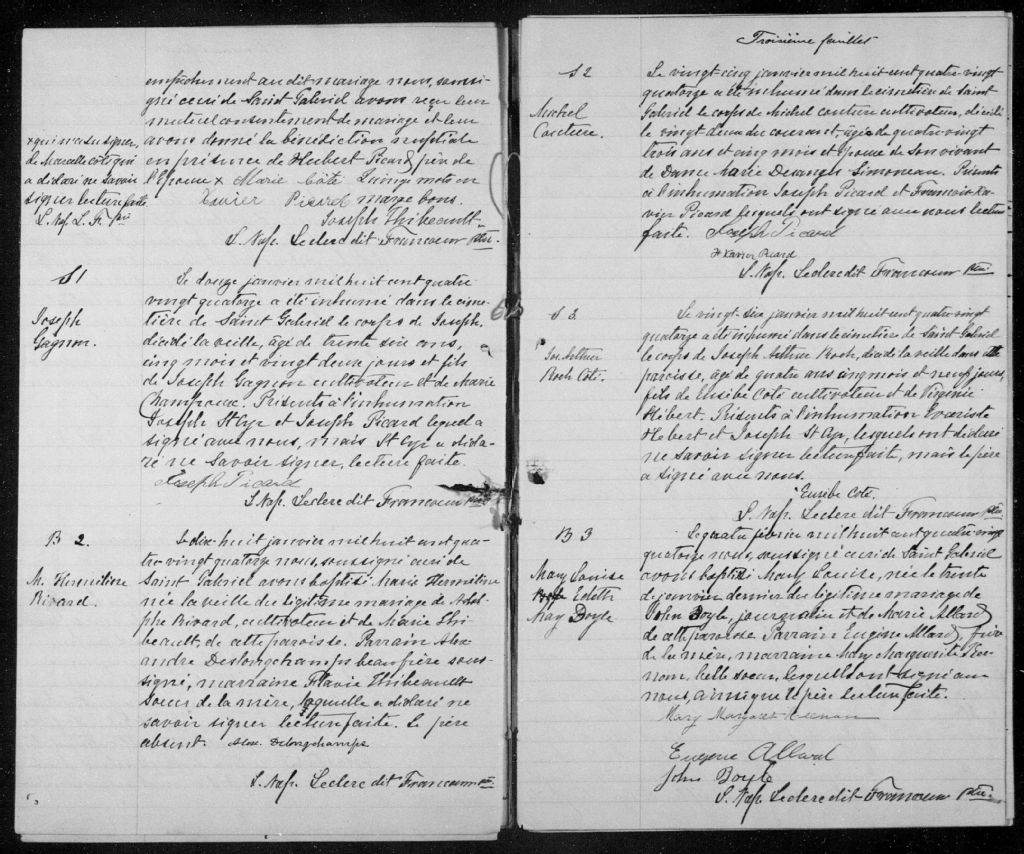 empêchement au dit mariage nous, soussi-
gné curé de Saint Gabriel avons reçu leur
mutuel consentement de mariage et leur
avons donné la bénédiction nuptiale
en présence de Hubert Picard, père de
l'Epoux x Marie Côté Quinze mots en
Xavier Picard marge bons.
Joseph Thibeault
S. Nap. Leclerc dit Francoeur Ptre.
x qui n'a su signer,
de Marcelle côté qui
a déclaré ne savoir
signer lecture faite
S. Nap. L. F. Ptre
S 1
Joseph
Gagnon.
Le douze janvier mil huit cent quatre
vingt quatorze a été inhumé dans le cime-
tière de Saint Gabriel le corps de Joseph,
décédé la veille, âgé de trente six ans,
cinq mois et vingt deux jours et fils
de Joseph Gagnon cultivateur et de Marie
Champoux. Présents à l'inhumation
Joseph St Cyr et Joseph Picard lequel a
signé avec nous, mais St Cyr a décla-
ré ne savoir signer, lecture faite.
Joseph Picard
S. Nap. Leclerc dit Francoeur Ptre
B 2.
M. Herméline
Rivard.
Le dix-huit janvier mil huit cent qua-
tre-vingt quatorze nous, soussigné curé de
Saint Gabriel avons baptisé Marie Herméline
née la veille du légitime mariage de Adol-
phe Rivard, cultivateur et de Marie Thi-
beault, de cette paroisse. Parrain Alex
andre Deslongchamps beau frère sous-
signé, marraine Flavie Thibeault
soeur de la mère, laquelle a déclaré ne
savoir signer lecture faite. Le père
absent. Alex. Deslongchamps
S. Nap. Leclerc dit Francoeur Ptre
Troisième feuillet
S 2
Michel
Couture.
Le vingt cinq janvier mil huit cent quatre-vingt
quatorze a été inhumé dans le cimetière de Saint
Gabriel le corps de Michel couture cultivateur, décédé
le vingt deux du courant, âgé de quatre vingt
trois ans et cinq mois et Epoux de son vivant
de Dame Marie Desanges Simoneau. Présents
à l'inhumation Joseph Picard et Francois Xa-
vier Picard lesquels ont signé avec nous lecture
faite. Joseph Picard
F Xavier Picard
S. Nap. Leclerc dit Francoeur Ptre
S 3.
Jos Arthur
Roch Côté.
Le vingt-six janvier mil huit cent quatre vingt
quatorze a été inhumé dans le cimetière de Saint Gabriel
le corps de Joseph Arthur Roch, décédé la veille dans cette
paroisse, âgé de quatre ans cinq mois et neuf jours,
fils de Eusèbe Côté cultivateur et de Virginie
Hébert. Présents à l'inhumation Evariste
Hebert et Joseph St Cyr, lesquels ont déclaré
ne savoir signer lecture faite, mais le père
a signé avec nous.
Eusèbe Coté.
S. Nap. Leclerc dit Francoeur Ptre
B 3
Mary Louise
Edith
May Doyle
Le quatre février mil huit cent quatre vingt
quatorze nous, soussigné curé de Saint Gabriel
avons baptisé Mary Louise, née le trente
de janvier dernier du légitime mariage de
John Boyle, journalier et de Marie Allard
de cette paroisse Parrain Eugène Allard, frère
de la mère, marraine Mary Marguerite Kee-
nom, belle soeur, lesquels ont signé avec
nous, ainsi que le père lecture faite.
Mary Margaret Keenan
Eugene Allard
John Boyle
S. Nap. Leclerc dit Francoeur Ptre.